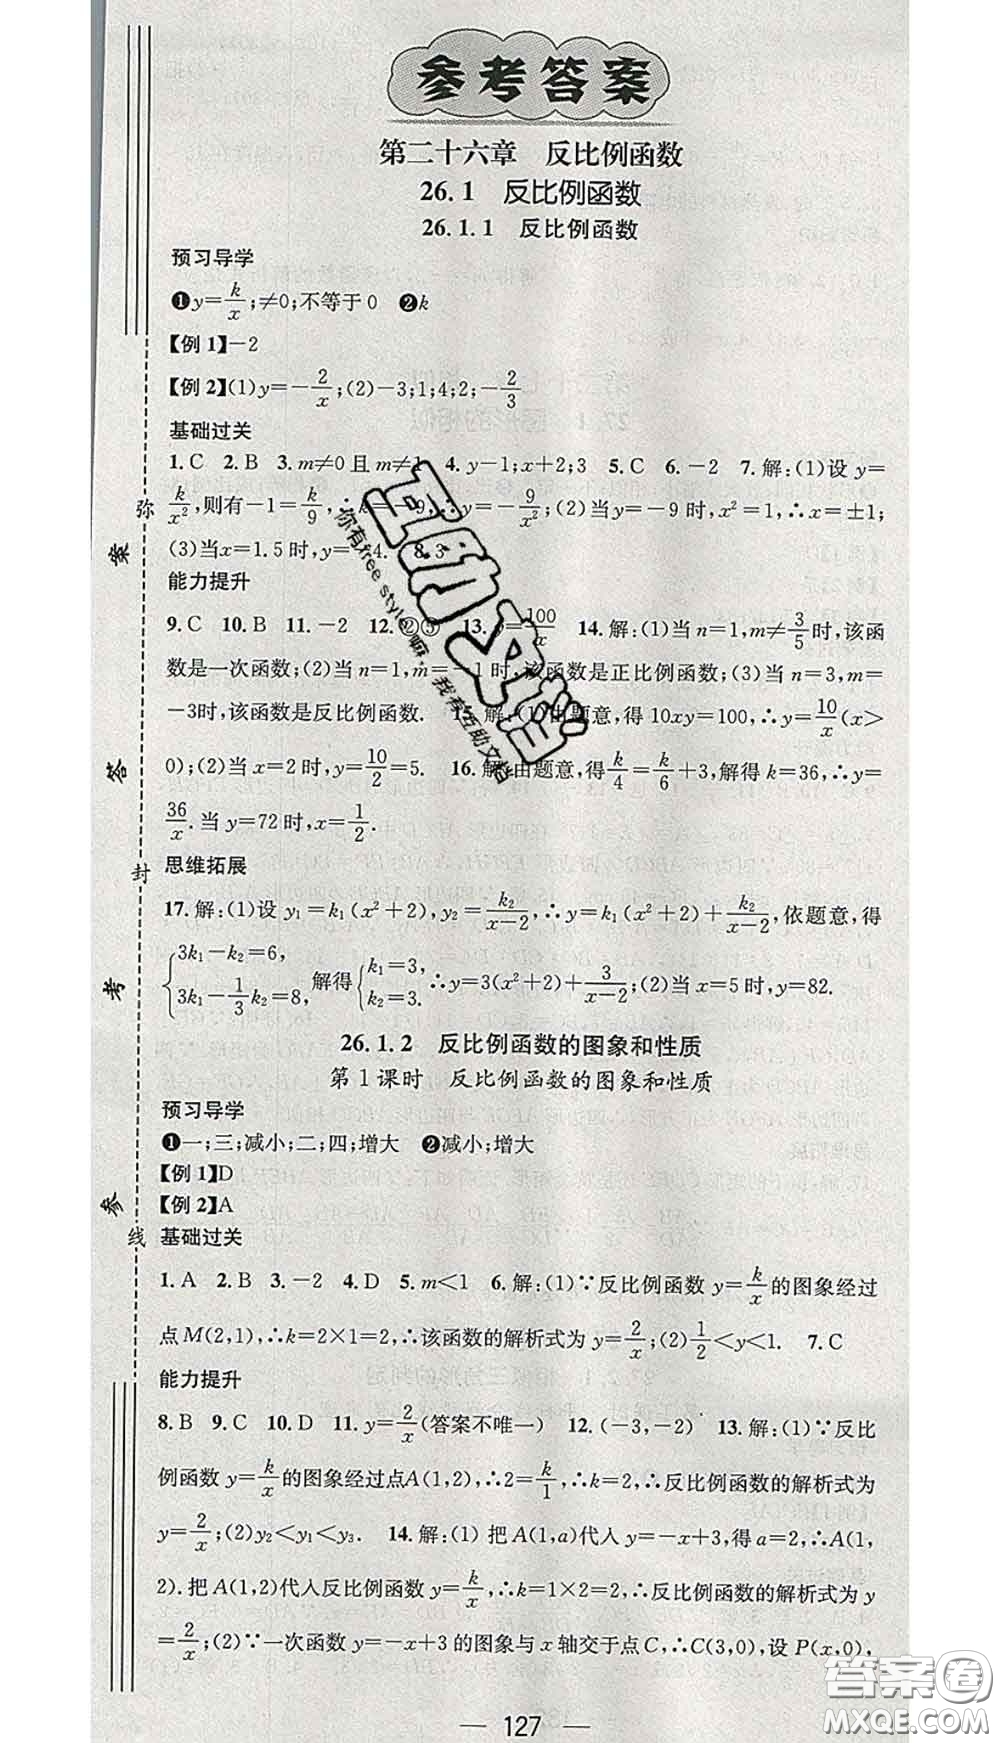 参考答案
第二十六章 反比例函数
26.1 反比例函数
26.1.1 反比例函数
预习导学
❶y=k/x;≠0;不等于0 ❷k
【例1】-2
【例2】(1)y=-2/x;(2)-3;1;4;2;-2/3
基础过关
1.C 2.B 3.m≠0且m≠1 4.y-1;x+2;3 5.C 6.-2 7.解:(1)设y=
k/x²,则有-1=k/9,∴k=-9,∴y=-9/x²;(2)当y=-9时,x²=1,∴x=±1;
(3)当x=1.5时,y=-4. 8.3
能力提升
9.C 10.B 11.-2 12.②⑤ 13.y=100/x 14.解:(1)当n=1,m≠3/5时,该函
数是一次函数;(2)当n=1,m=-1时,该函数是正比例函数;(3)当n=3,m=
-3时,该函数是反比例函数. 15.解:(1)由题意,得10xy=100,∴y=10/x(x>
0);(2)当x=2时,y=10/2=5. 16.解:由题意,得k/4=k/6+3,解得k=36,∴y=
36/x.当y=72时,x=1/2.
思维拓展
17.解:(1)设y₁=k₁(x²+2),y₂=k₂/(x-2),∴y=k₁(x²+2)+k₂/(x-2),依题意,得
{3k₁-k₂=6, 3k₁-1/3k₂=8, 解得{k₁=3, k₂=3. ∴y=3(x²+2)+3/(x-2);(2)当x=5时,y=82.
26.1.2 反比例函数的图象和性质
第1课时 反比例函数的图象和性质
预习导学
❶一;三;减小;二;四;增大 ❷减小;增大
【例1】D
【例2】A
基础过关
1.A 2.B 3.-2 4.D 5.m<1 6.解:(1)∵反比例函数y=k/x的图象经过
点M(2,1),∴k=2×1=2,∴该函数的解析式为y=2/x;(2)1/2<y<1. 7.C
能力提升
8.B 9.C 10.D 11.y=2/x(答案不唯一) 12.(-3,-2) 13.解:(1)∵反比
例函数y=k/x的图象经过点A(1,2),∴2=k/1,∴k=2,∴反比例函数的解析式为
y=2/x;(2)y₂<y₁<y₃. 14.解:(1)把A(1,a)代入y=-x+3,得a=2,∴A(1,
2).把A(1,2)代入反比例函数y=k/x,∴k=1×2=2,∴反比例函数的解析式为y
=2/x;(2)∵一次函数y=-x+3的图象与x轴交于点C,∴C(3,0),设P(x,0),
— 127 —
弥
封
线
参
考
答
案
互助文档
你有free style嘛 我有互助文档
答案圈
MXQE.COM